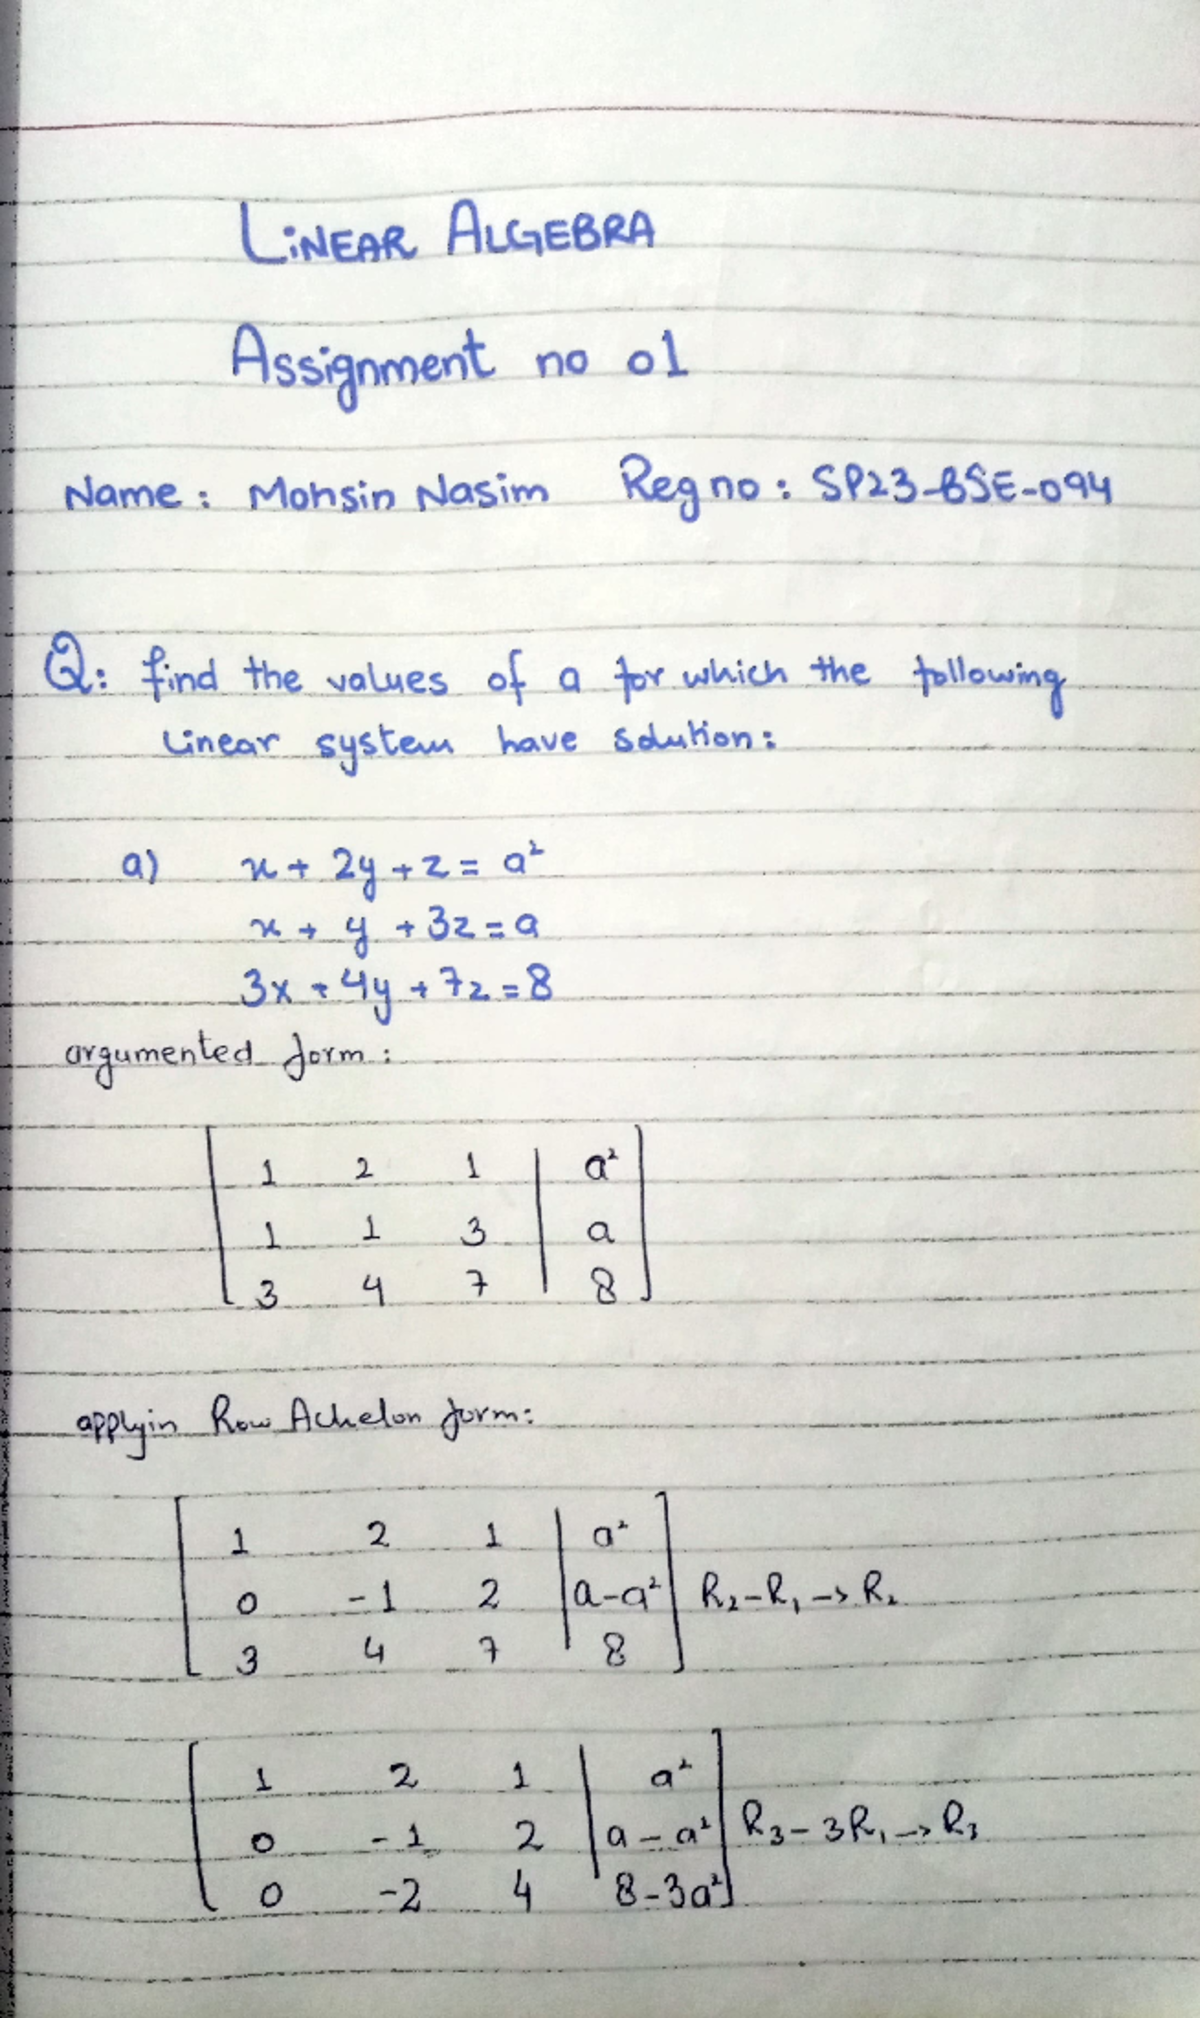 LINEAR ALGEBRA
Assignment no 01
Name: Mohsin Nasim Reg no: SP23-BSE-094
Q: find the values of a for which the following
Linear system have solution:
a) x + 2y + z = a²
x + y + 3z = a
3x + 4y + 7z = 8
argumented form:
1 2 1 | a²
1 1 3 | a
3 4 7 | 8
applyin Row Achelon form:
1 2 1 | a²
0 -1 2 | a-a² R₂-R₁ → R₂
3 4 7 | 8
1 2 1 | a²
0 -1 2 | a-a² R₃-3R₁ → R₃
0 -2 4 8-3a²